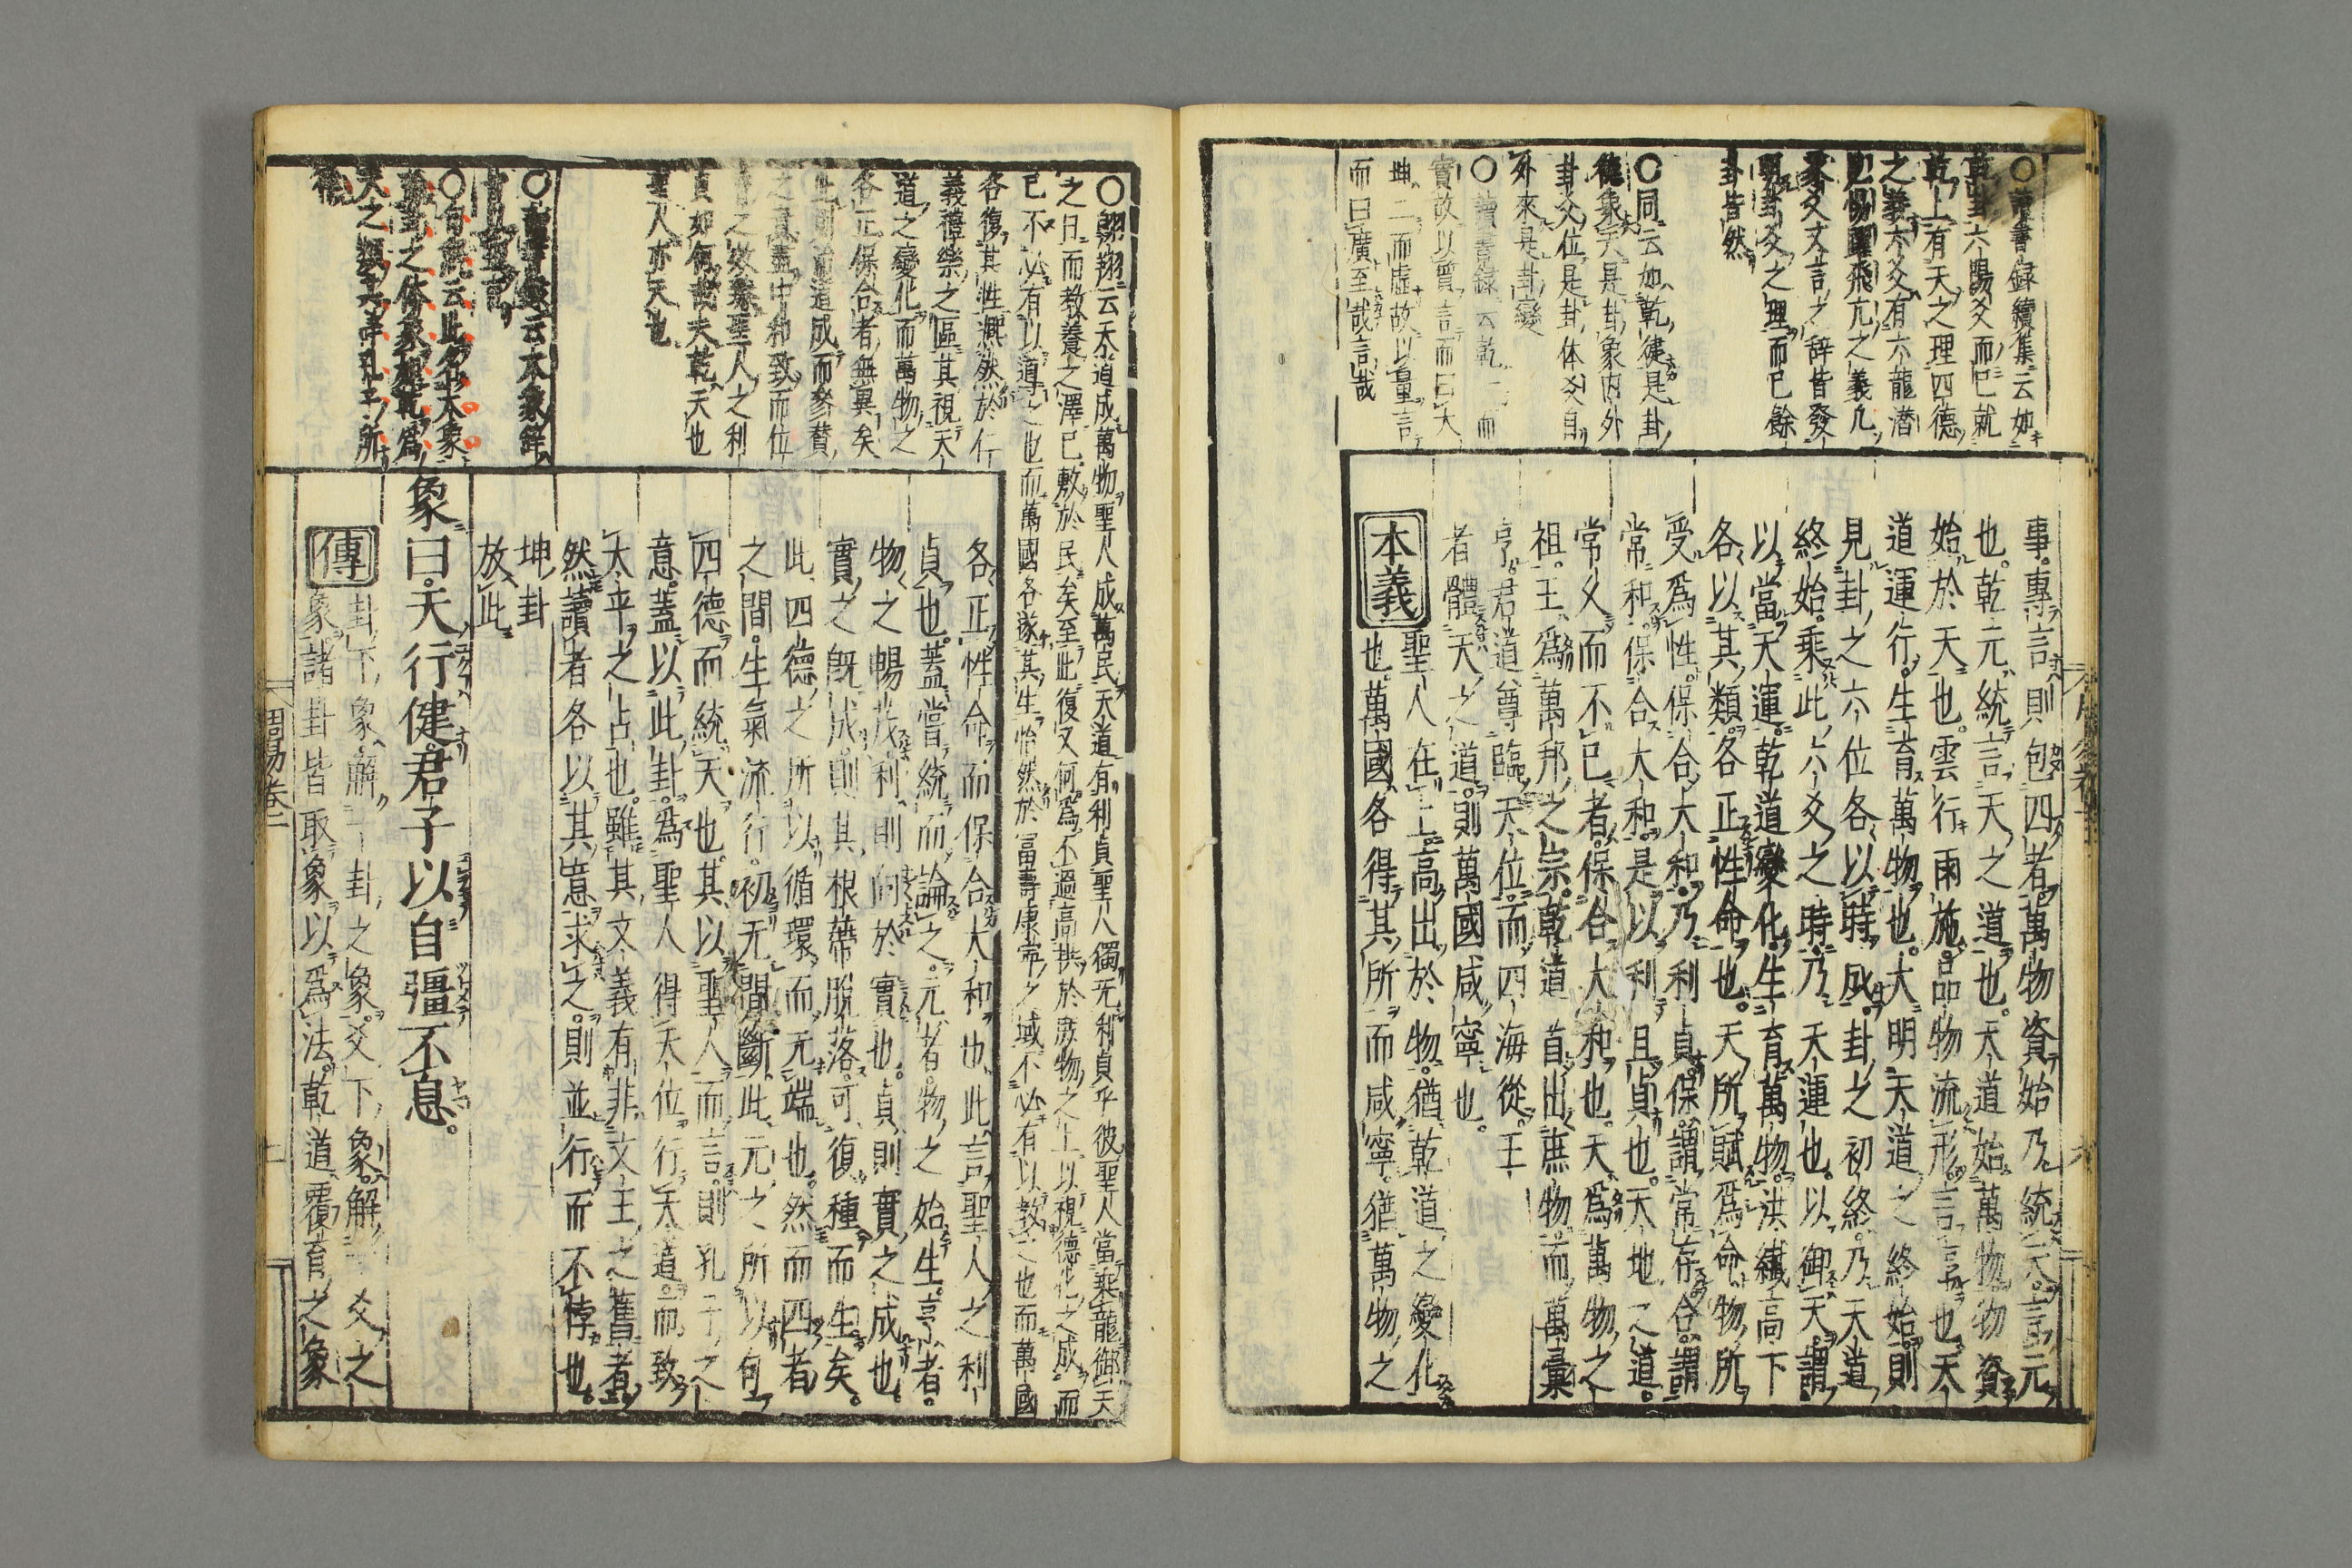 ○讀書録續集云如
乾卦六陽爻而已就
乾上有天之理四德
之義六爻有六龍潜
見惕躍飛亢之義凡
彖爻文言之辞皆發
明卦爻之理而已餘
卦皆然
○同云如乾健是卦
德象天是卦象内外
卦爻位是卦体爻自
外來是卦變
○讀書録云乾一而
實故以質言而曰大
坤二而虚故以量言
而曰廣至哉言哉
事。專言則包四者。萬物資始乃統天。言元
也。乾元統言天之道也。天道始萬物。物資
始於天也。雲行雨施。品物流形。言亨也。天
道運行。生育萬物也。大明天道之終始。則
見卦之六位各以時成。卦之初終。乃天道
終始。乘此六爻之時。乃天運也。以御天。謂
以當天運。乾道變化。生育萬物。洪纖高下
各以其類。各正性命也。天所賦爲命。物所
受爲性。保合大和。乃利貞。保謂常存。合謂
常和。保合大和。是以利且貞也。天地之道。
常久而不已者。保合大和也。天爲萬物之
祖。王爲萬邦之宗。乾道首出庶物。而萬彙
亨。君道尊臨天位。而四海從。王
者體天之道。則萬國咸寧也。
本義 聖人在上。高出於物。猶乾道之變化
也。萬國各得其所而咸寧。猶萬物之
○翺翔云天道成萬物聖人成萬民天道有利貞聖人獨无利貞乎彼聖人當乘龍御天
之日而教養之澤已敷於民矣至此復又何爲不過高拱於庶物之上以視德化之成而
已不必有以導之也而萬國各遂其生怡然於富壽康寧之域不必有以教之也而萬國
各復其性凞然於仁
義禮樂之區其視天
道之變化而萬物之
各正保合者無異矣
此則道成而參賛
之中和致而位
之效聖人之利
貞如何哉夫乾天也
聖人亦天也
各正性命。而保合大和也。此言聖人之利
貞也。蓋嘗統而論之。元者。物之始生。亨者。
物之暢茂。利則向於實也。貞則實之成也。
實之既成。則其根蔕脫落。可復種而生矣。
此四德之所以循環而无端也。然而四者
之間。生氣流行。初无間斷。此元之所以包
四德而統天也。其以聖人而言。則孔子之
意。蓋以此卦。爲聖人得天位。行天道。而致
太平之占也。雖其文義有非文王之舊者。
然讀者各以其意求之。則並行而不悖也。
坤卦
放此
○云大象
○云此名大象
卦之体象如乾爲
天之類孔子所
象曰。天行健。君子以自彊不息。
傳 卦下象。解一卦之象。爻下象。解一爻之
象。諸卦皆取象以爲法。乾道覆育之象
周易卷二